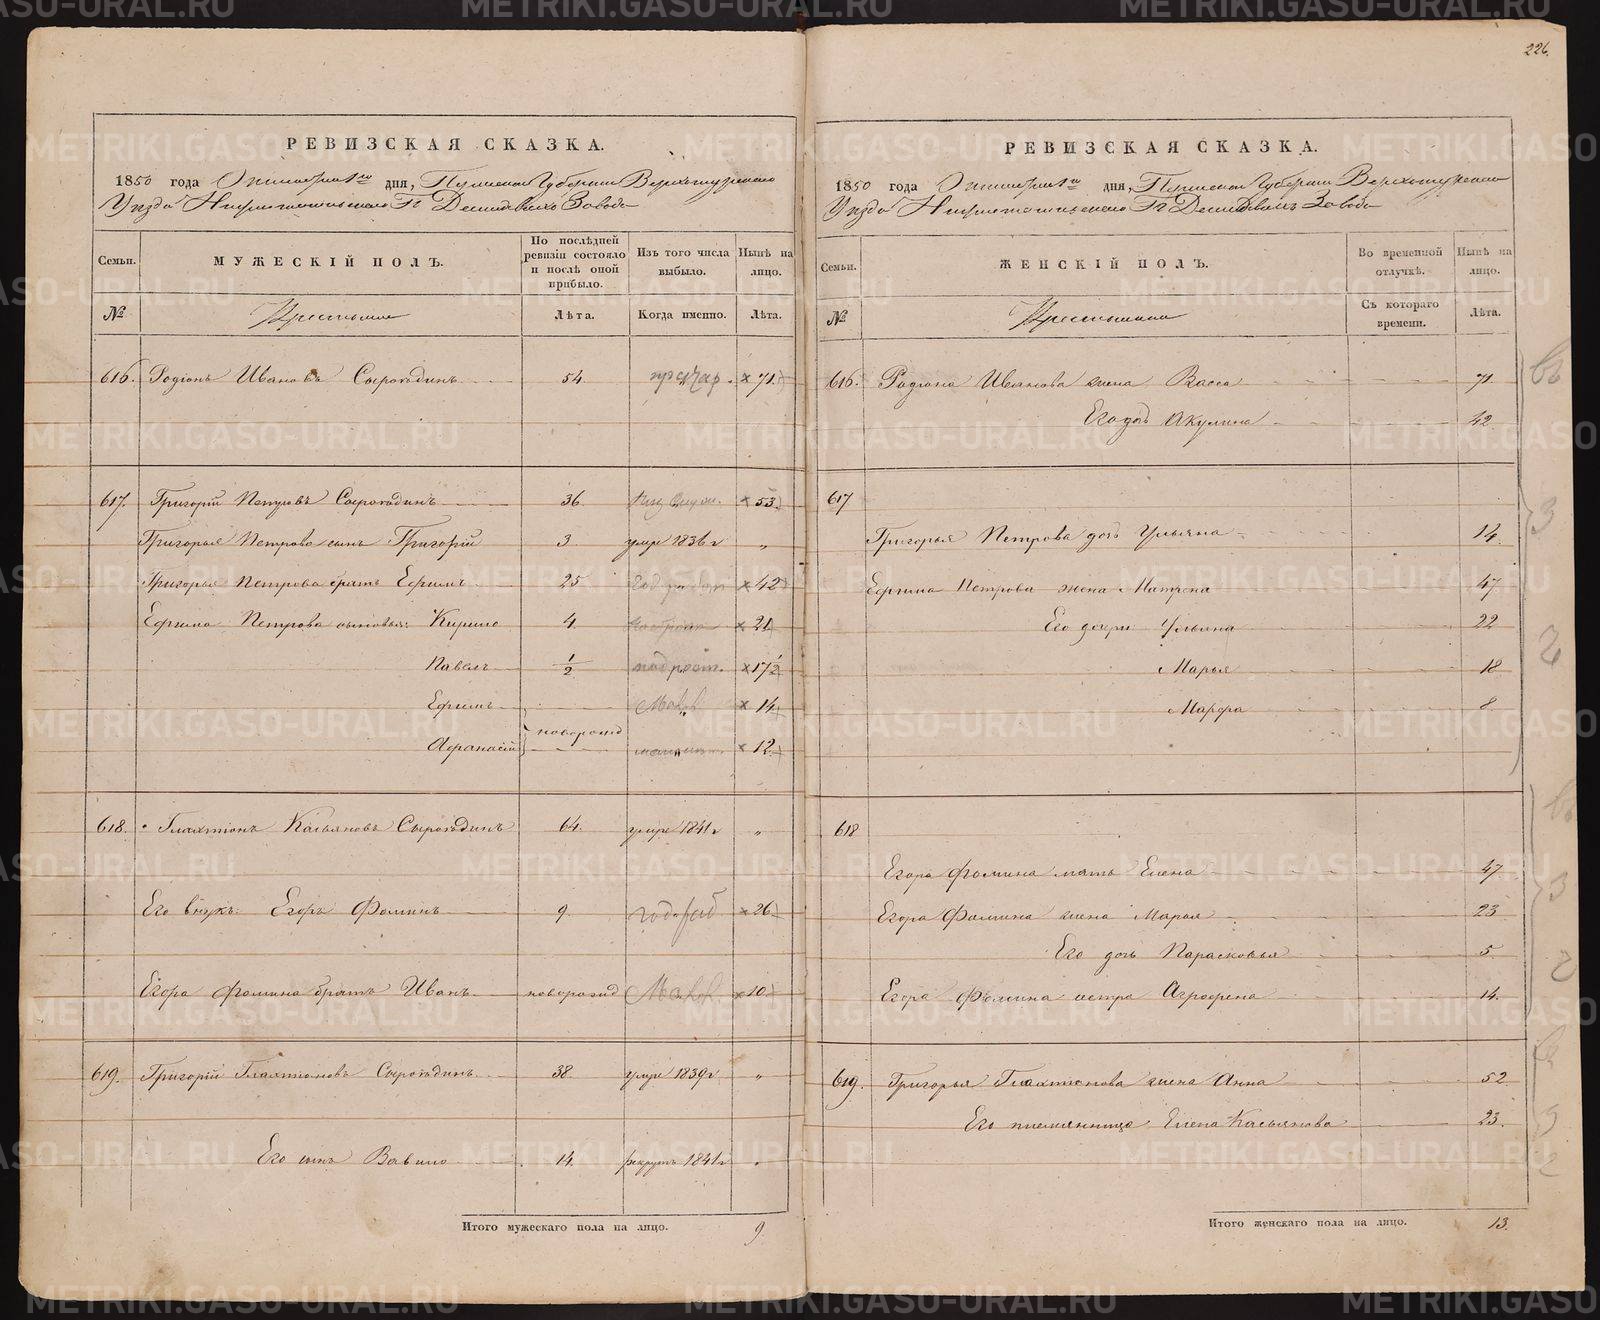 226.
РЕВИЗСКАЯ СКАЗКА.
1850 года Октября 1го дня, Пермской Губернии Верхотурскаго
Уезда Нижнетагильскаго Гг Демидовыхъ Завода
Семьи.
МУЖЕСКІЙ ПОЛЪ.
По послѣдней ревизіи состояло и послѣ оной прибыло.
Изъ того числа выбыло.
Нынѣ на лицо.
№
Крестьяне
Лѣта.
Когда именно.
Лѣта.
616. Родіонъ Ивановъ Сыроѣдинъ 54. × 71.
617. Григорій Петровъ Сыроѣдинъ 36. × 53.
Григорья Петрова сынъ Григорій 3 умре 1836 г „
Григорья Петрова братъ Ефимъ 25 × 42
Ефима Петрова сыновья: Кирило 4. × 21
Павелъ 1/2 подрост. × 17 1/2
Ефимъ × 14
новорожд
Афанасій × 12
618. Галахтіонъ Касьяновъ Сыроѣдинъ 64. умре 1841 г „
Его внукъ: Егоръ Фоминъ 9. год. раб × 26
Егора Фомина братъ Иванъ новорожд × 10
619. Григорій Галахтіоновъ Сыроѣдинъ 38. умре 1839 г „
Его сынъ Вавило 14. рекрутъ 1841 г „
Итого мужескаго пола на лицо. 9.
РЕВИЗСКАЯ СКАЗКА.
1850 года Октября 1го дня, Пермской Губернии Верхотурскаго
Уезда Нижнетагильскаго Гг Демидовыхъ Завода
Семьи.
ЖЕНСКІЙ ПОЛЪ.
Во временной отлучкѣ.
Нынѣ на лицо.
№
Крестьянки
Съ котораго времени.
Лѣта.
616. Родіона Иванова жена Васса 71
Его дочь Акулина 42
617
Григорья Петрова дочь Ульяна 14.
Ефима Петрова жена Матрена 47
Его дочери: Ульяна 22
Марья 18
Марфа 8
618
Егора Фомина мать Елена 47
Егора Фомина жена Марья 23
Его дочь Парасковья 5
Егора Фомина сестра Агрофена 14.
619. Григорья Галахтіонова жена Анна 52
Его племянница Елена Касьянова 23.
Итого женскаго пола на лицо. 13.
METRIKI.GASO-URAL.RU